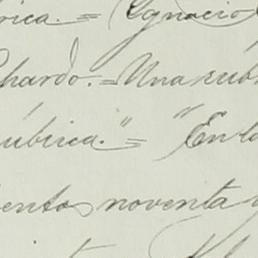 rica.= Ignacio
chardo.=Una rúb
rúbrica."=" En la
ientos noventa y